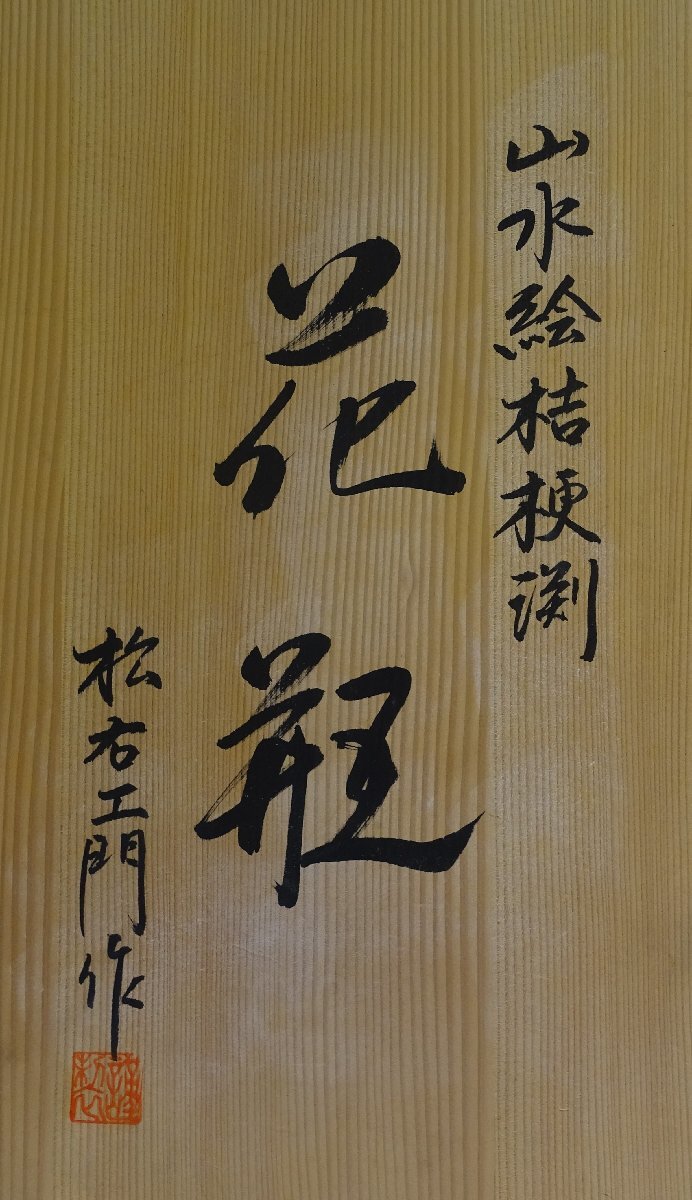 山水絵桔梗渕
花瓶
松右エ門作
謹製